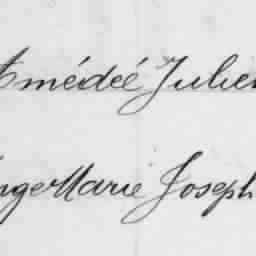 Amédeé Julien
Ange Marie Joseph